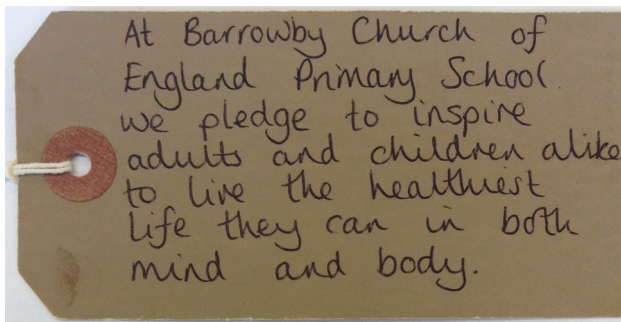 At Barrowby Church of
England Primary School
we pledge to inspire
adults and children alike
to live the healthiest
life they can in both
mind and body.